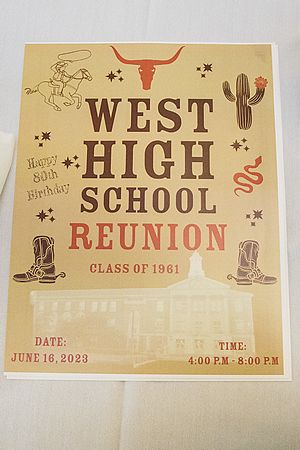 WEST
HIGH
SCHOOL
REUNION
Happy
80th
Birthday
CLASS OF 1961
DATE:
JUNE 16, 2023
TIME:
4:00 P.M - 8:00 P.M